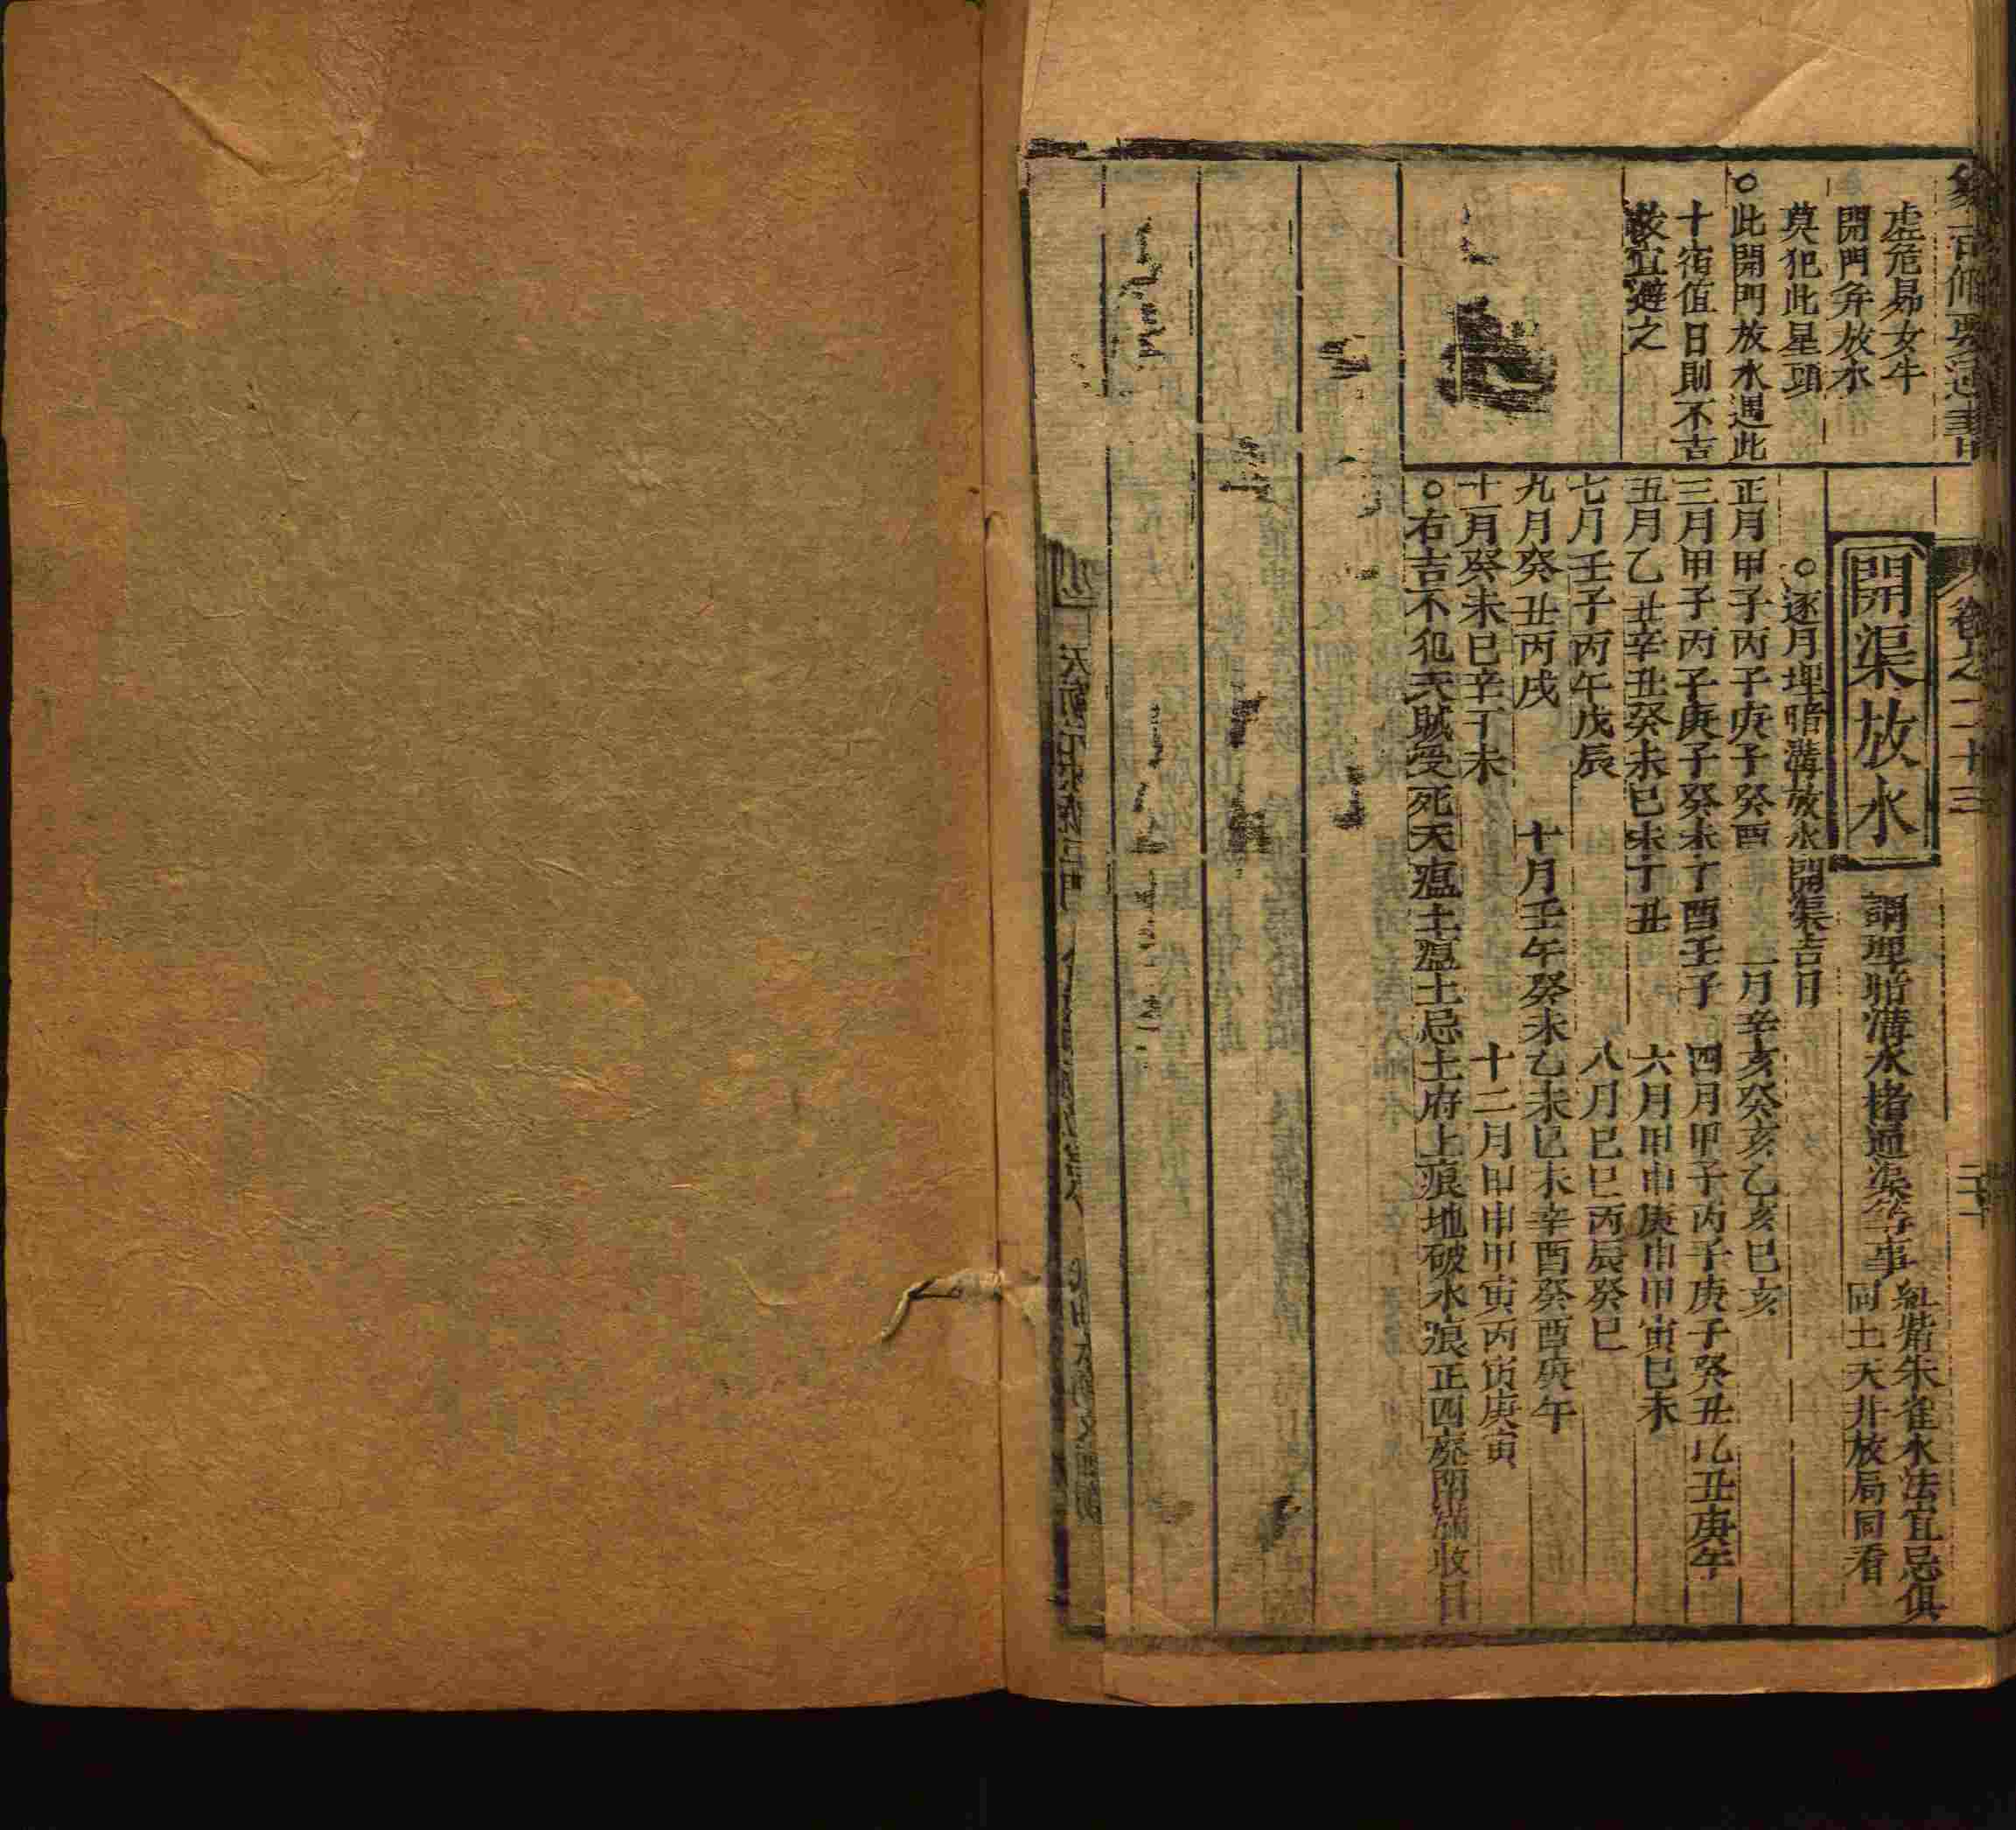 卷之二十三
虛危昴女牛
開門并放水
莫犯此星頭
○此開門放水遇此
十宿值日則不吉
故宜避之
開渠放水
謂理暗溝水堵通渠等事
紅觜朱雀水法宜忌俱
同土天井放局同看
○逐月埋暗溝放水開渠吉日
正月甲子丙子庚子癸酉 二月辛亥癸亥乙亥巳亥
三月甲子丙子庚子癸未丁酉壬子 四月甲子丙子庚子癸丑乙丑庚午
五月乙丑辛丑癸未巳未丁丑 六月甲申庚申甲寅巳未
七月壬子丙午戊辰 八月巳巳丙辰癸巳
九月癸丑丙戌 十月壬午癸未乙未巳未辛酉癸酉庚午
十一月癸未巳辛丁未 十二月甲申甲寅丙寅庚寅
○右吉不犯天賊受死天瘟土瘟土忌土府土痕地破水痕正四廢閉滿收日